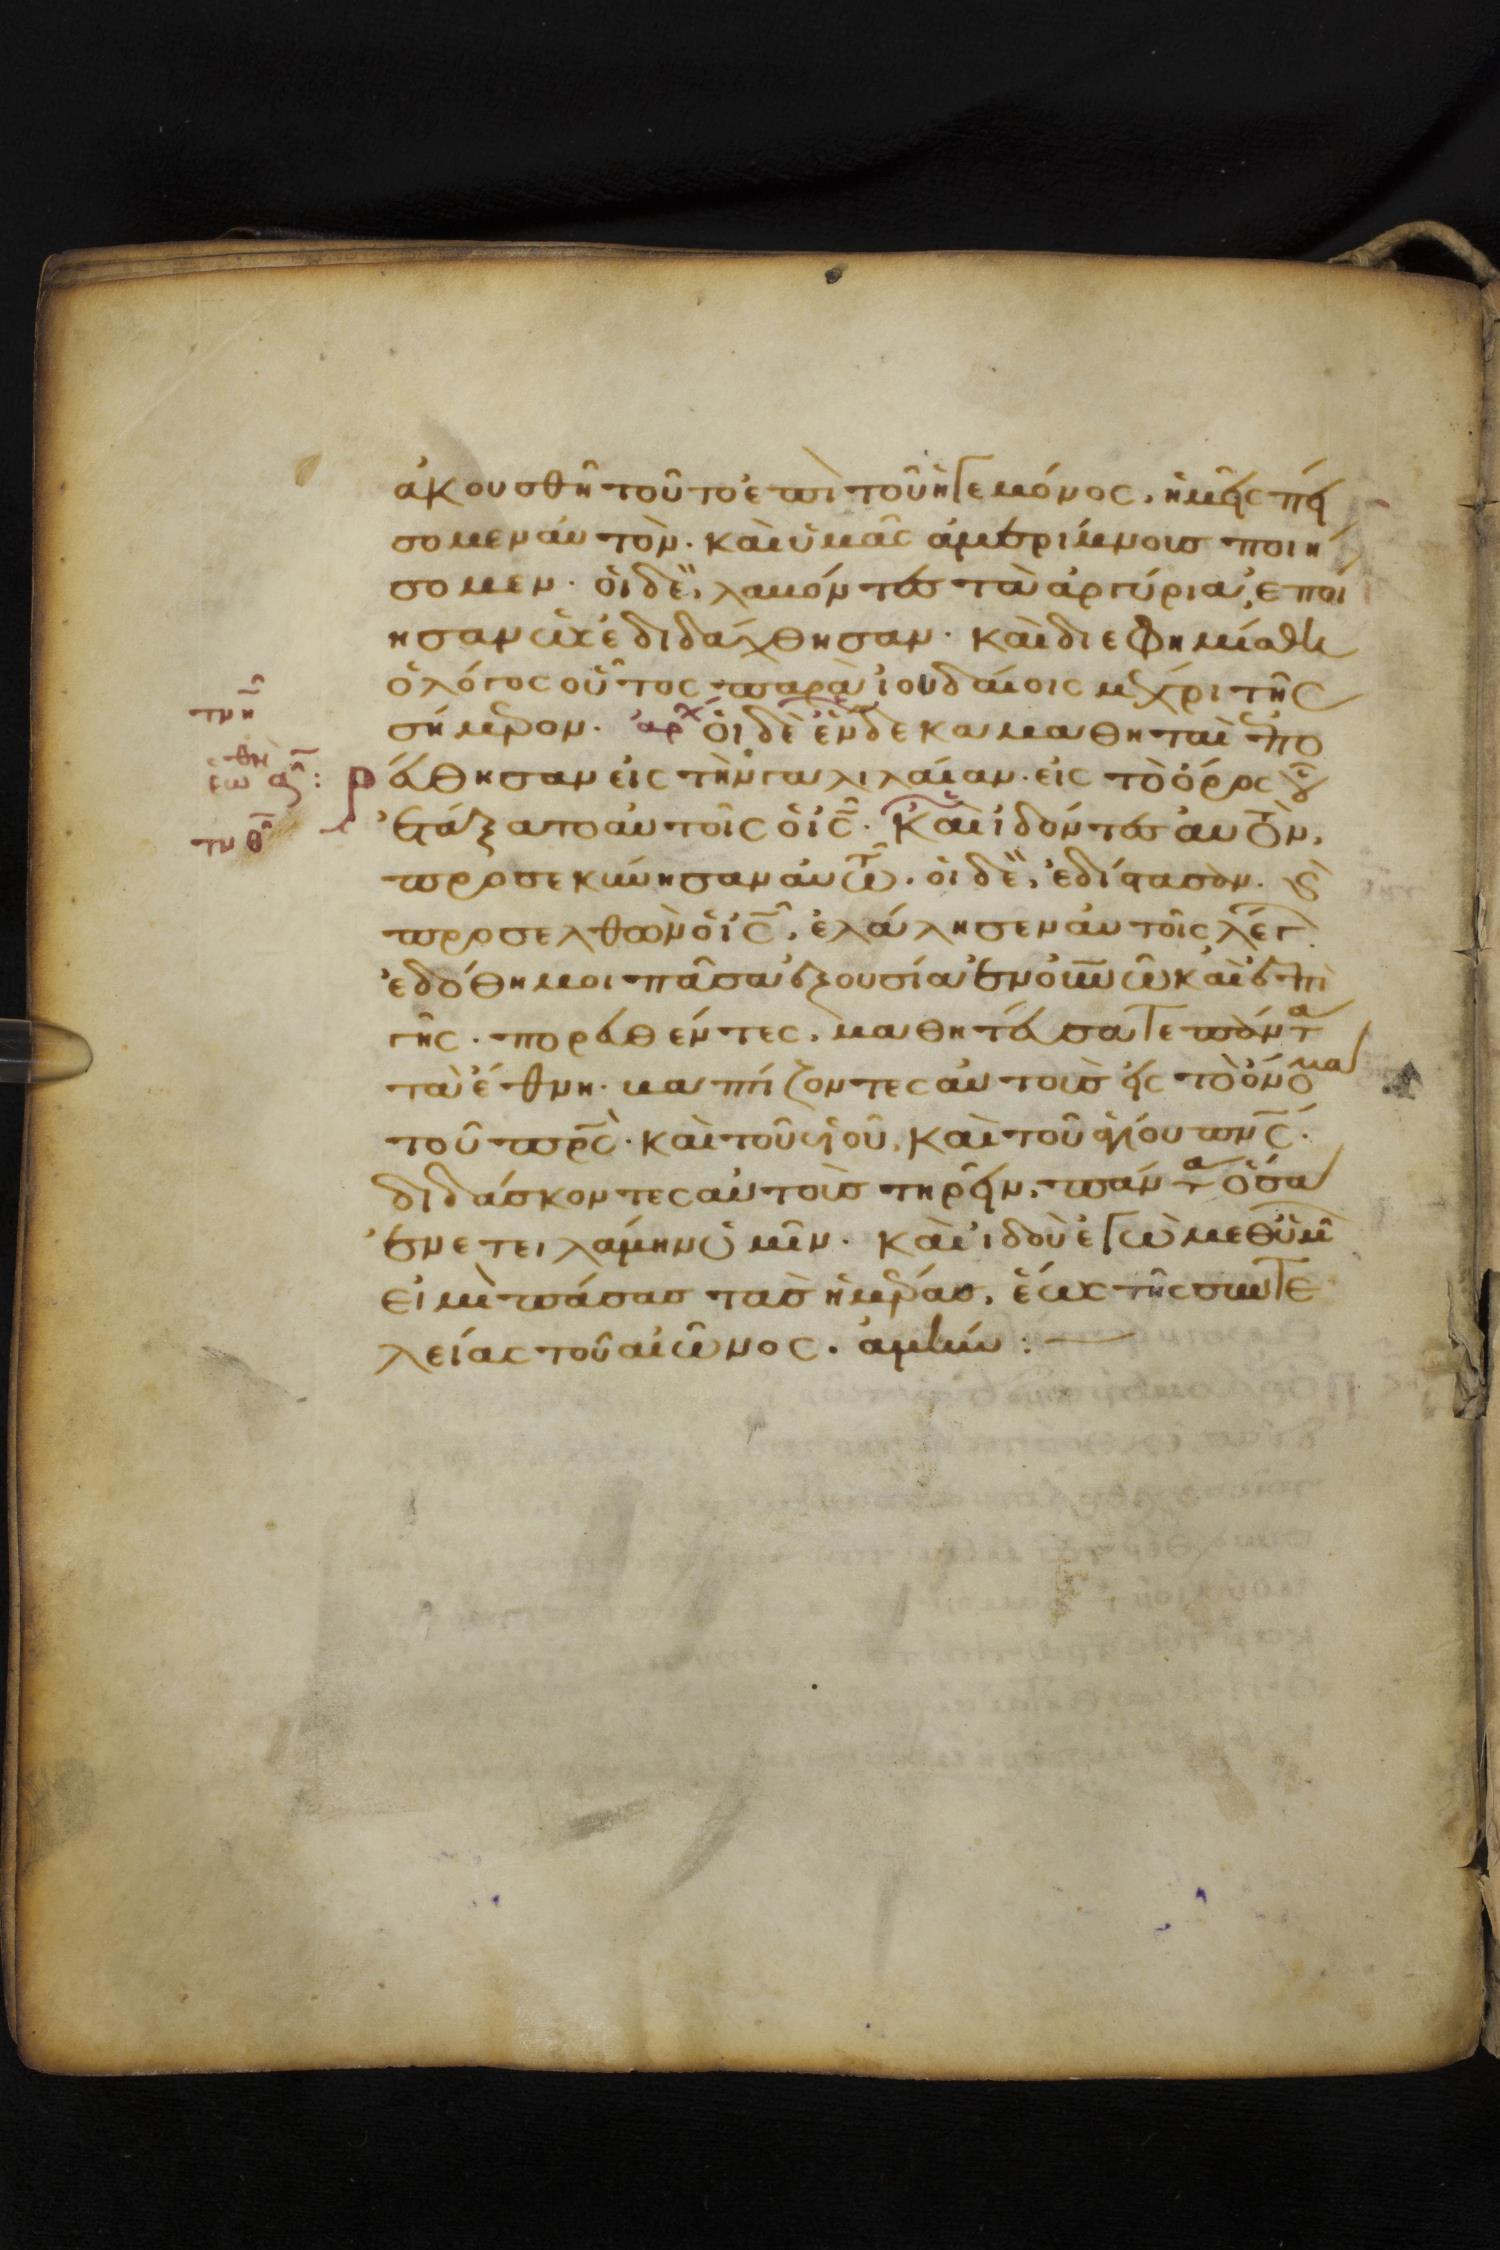 ἀκουσθῆ τοῦτο ἐπὶ τοῦ ἡγεμόνος, ἡμεῖς πεί
σομεν αὐτὸν· καὶ ὑμᾶς ἀμερίμνους ποιή
σομεν· οἱ δὲ, λαβόντες τὰ ἀργύρια, ἐποί
ησαν ὡς ἐδιδάχθησαν· καὶ διεφημίσθη
ὁ λόγος οὗτος παρὰ ἰουδαίοις μέχρι τῆς
σήμερον· ἀρχ οἱ δὲ ἕνδεκα μαθηταὶ ἐπο
ρεύθησαν εἰς τὴν γαλιλαίαν· εἰς τὸ ὄρος οὗ
ἐτάξατο αὐτοῖς ὁ ἰς̄· Καὶ ἰδόντες αὐτὸν,
προσεκύνησαν αὐτῶ· οἱ δὲ, ἐδίστασαν· κ
προσελθὼν ὁ ἰς̄, ἐλάλησεν αὐτοῖς λέγ
ἐδόθη μοι πᾶσα ἐξουσία ἐν οὐνῶ καὶ ἐπὶ
γῆς· πορευθέντες, μαθητεύσατε πάντα
τὰ ἔθνη· βαπτίζοντες αὐτοὺς εἰς τὸ ὄνομα
τοῦ πρς̄· καὶ τοῦ υἱοῦ, καὶ τοῦ ἁγίου πνς̄·
διδάσκοντες αὐτοὺς τηρεῖν, πάντα ὅσα
ἐνετειλάμην ὑμῖν· καὶ ἰδοὺ ἐγὼ μεθ ὑμ
εἰμὶ πάσας τὰς ἡμέρας, ἕως τῆς συντε
λείας τοῦ αἰῶνος· ἀμήν: